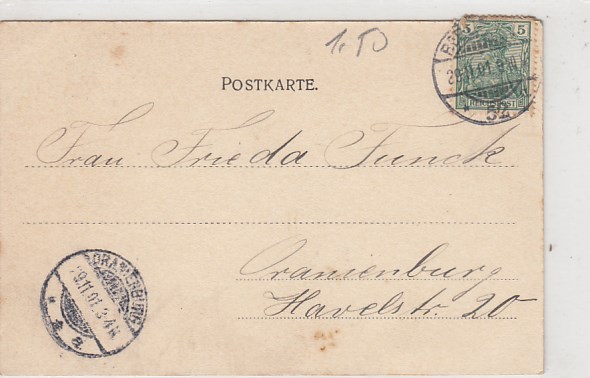 1.50
5
29.11.01
52
POSTKARTE.
Frau Frieda Funck
Oranienburg
Havelstr. 20
ORANIENBURG
29.11.01. 3-4N
a